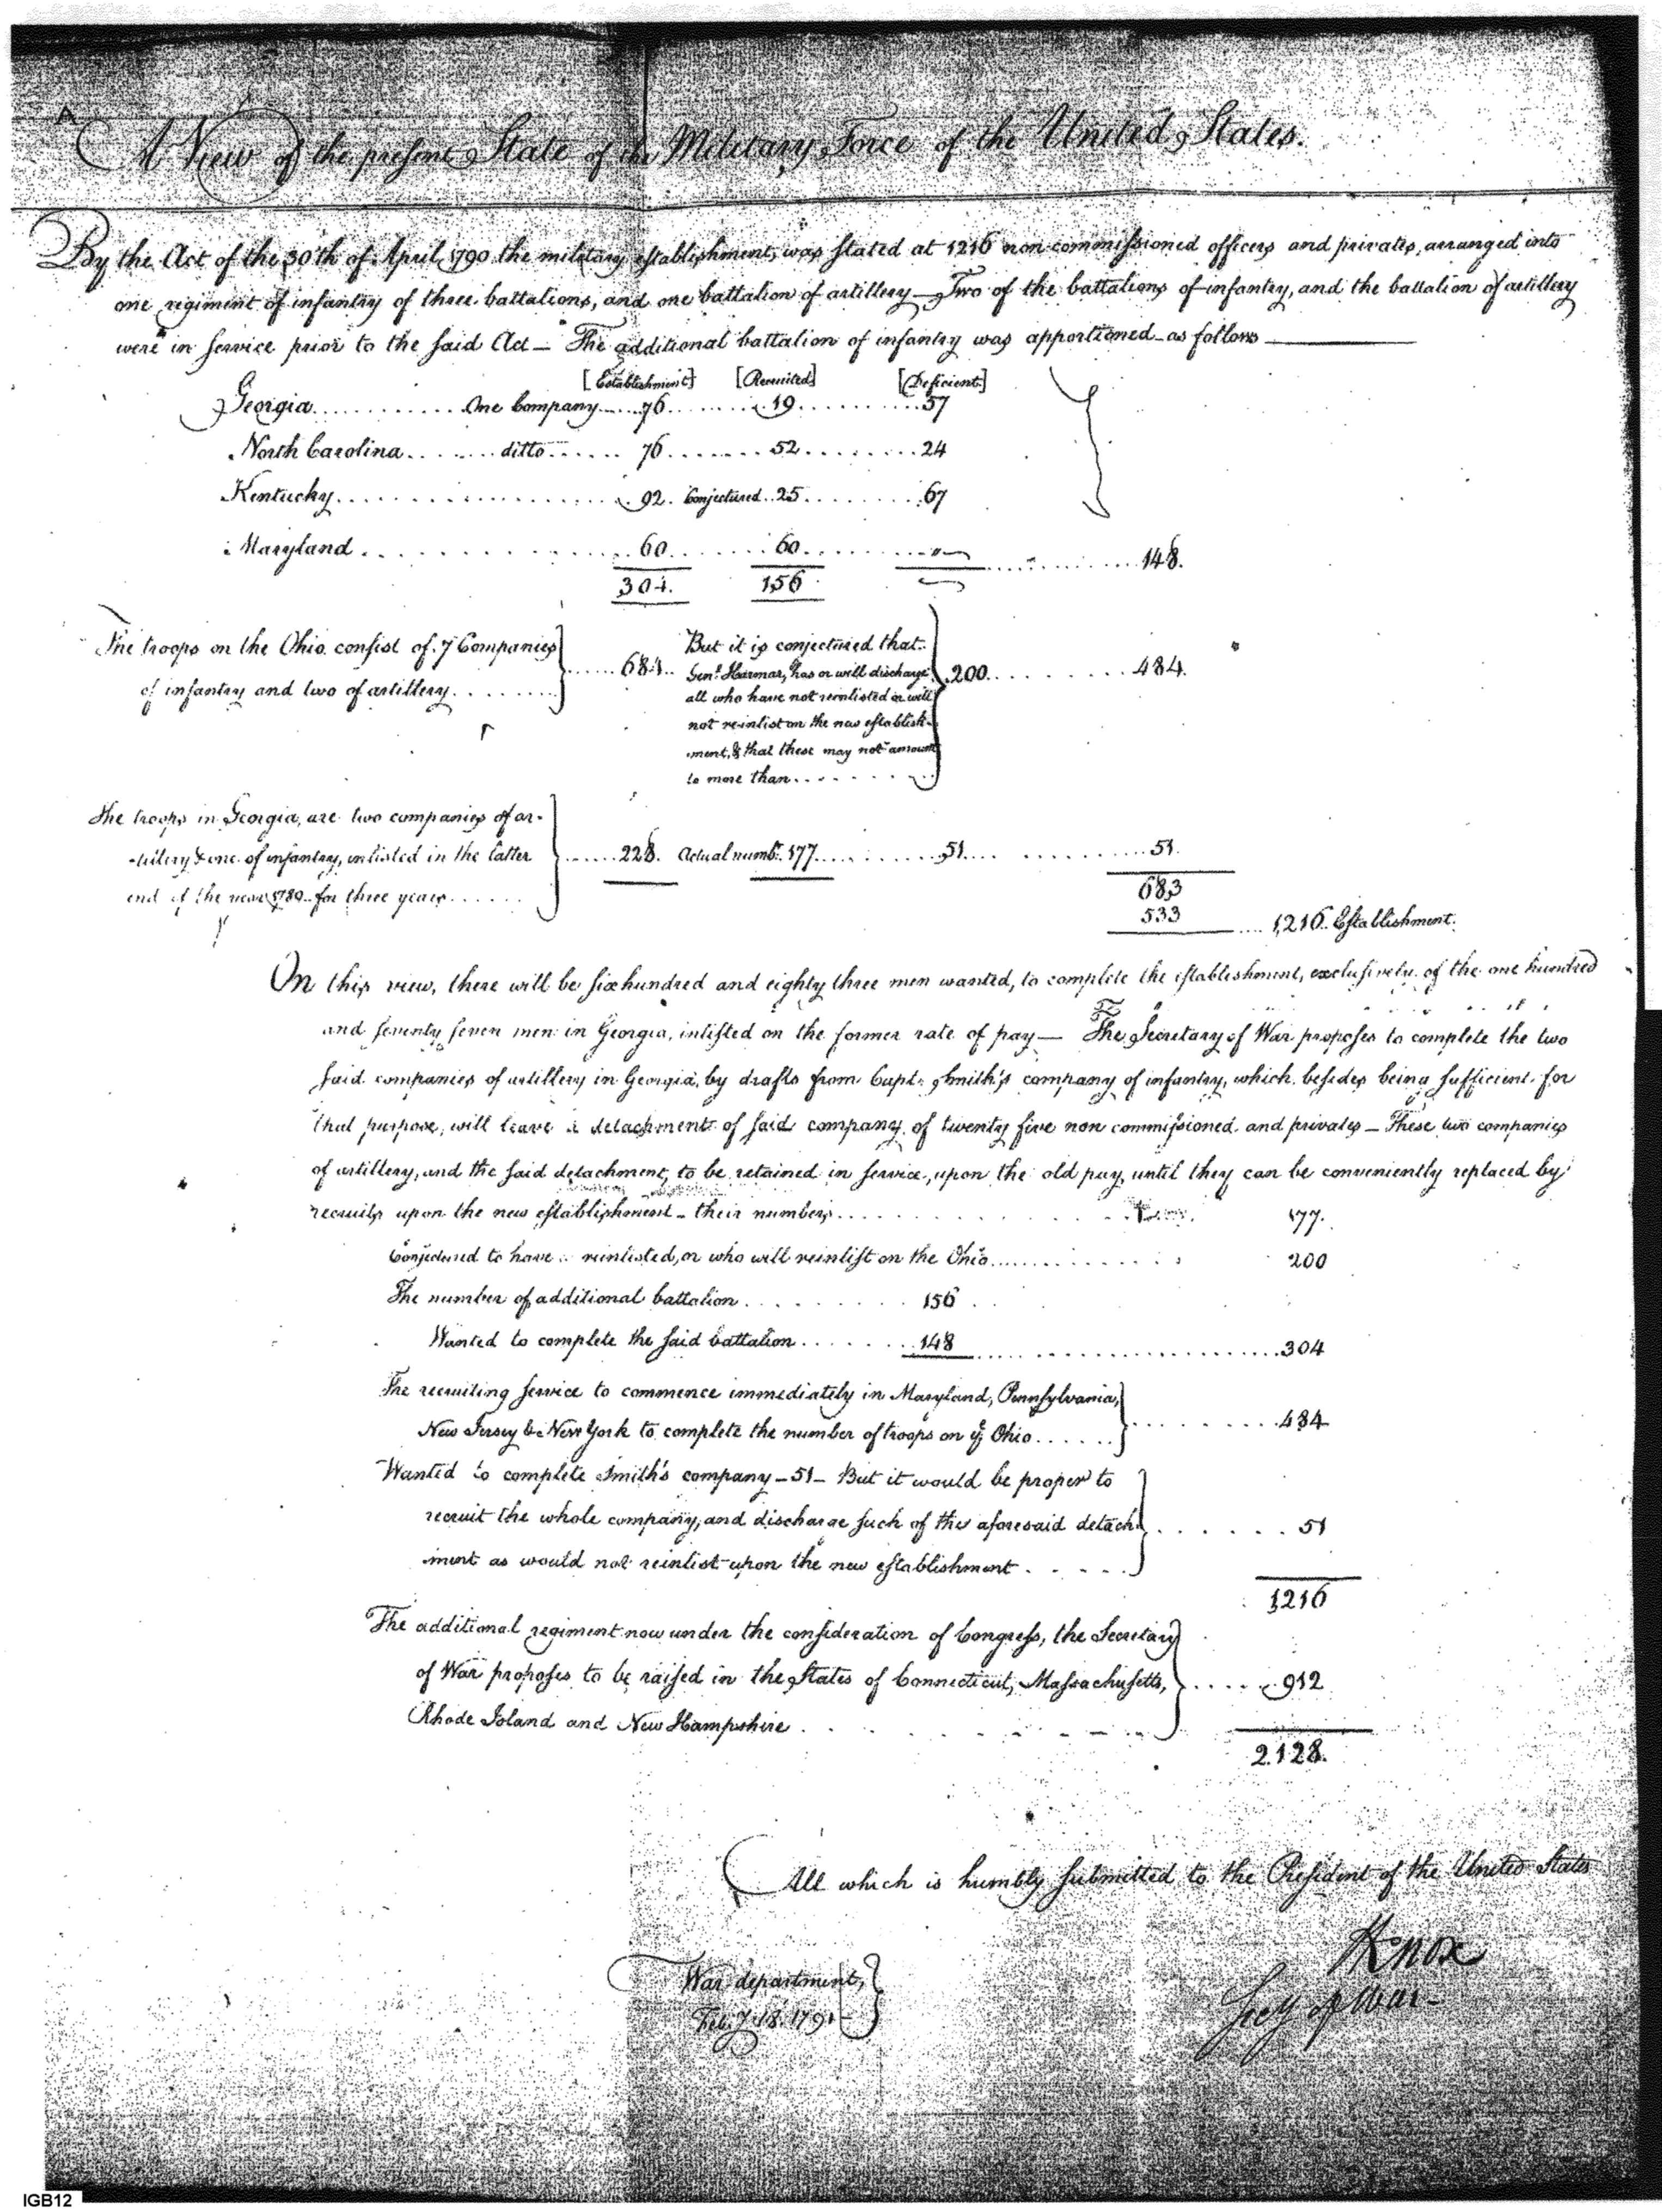 A
A View of the present State of the Military Force of the United States.
By the Act of the 30th of April 1790 the military establishment, was stated at 1216 non-commissioned officers and privates, arranged into
one regiment of infantry of three battalions, and one battalion of artillery — Two of the battalions of infantry, and the battalion of artillery
were in service prior to the said Act — The additional battalion of infantry was apportioned as follows
[Establishment] [Recruited] [Deficient]
Georgia............One Company.....76........19..........57
North Carolina........ditto......76.......52........24
Kentucky...............92. Conjectured..25........67
Maryland...............60.......60........"......148.
304. 156
The troops on the Ohio consist of 7 Companies
of infantry and two of artillery........
......684..
But it is conjectured that
Genl. Harmar, has or will discharge
all who have not reinlisted or will
not re-inlist on the new establish-
ment, & that these may not amount
to more than........
200..........484.
The troops in Georgia, are two companies of ar-
-tillery & one of infantry, inlisted in the latter
end of the year 1789. for three years......
......228. Actual numb. 177..........51...........51.
683
533 .... 1,216. Establishment.
On this view, there will be six hundred and eighty three men wanted, to complete the establishment, exclusively of the one hundred
and seventy seven men in Georgia, inlisted on the former rate of pay — The Secretary of War proposes to complete the two
said companies of artillery in Georgia, by drafts from Capt. Smith's company of infantry, which besides being sufficient for
that purpose, will leave a detachment of said company of twenty five non commissioned and privates — These two companies
of artillery, and the said detachment, to be retained in service, upon the old pay, until they can be conveniently replaced by
recruits upon the new establishment — their numbers.......... 177.
Conjectured to have reinlisted, or who will reinlist on the Ohio.......... 200
The number of additional battalion.......... 156
Wanted to complete the said battalion.......148..........304
The recruiting service to commence immediately in Maryland, Pennsylvania,
New Jersey & New York to complete the number of troops on ye Ohio......
........484
Wanted to complete Smith's company — 51 — But it would be proper to
recruit the whole company, and discharge such of the aforesaid detach-
ment as would not reinlist upon the new establishment.....
.......51
1216
The additional regiment now under the consideration of Congress, the Secretary
of War proposes to be raised in the States of Connecticut, Massachusetts,
Rhode Island and New Hampshire
.....912
2128.
All which is humbly submitted to the President of the United States
HKnox
Secy of War
War department,
Feby. 18. 1791
IGB12